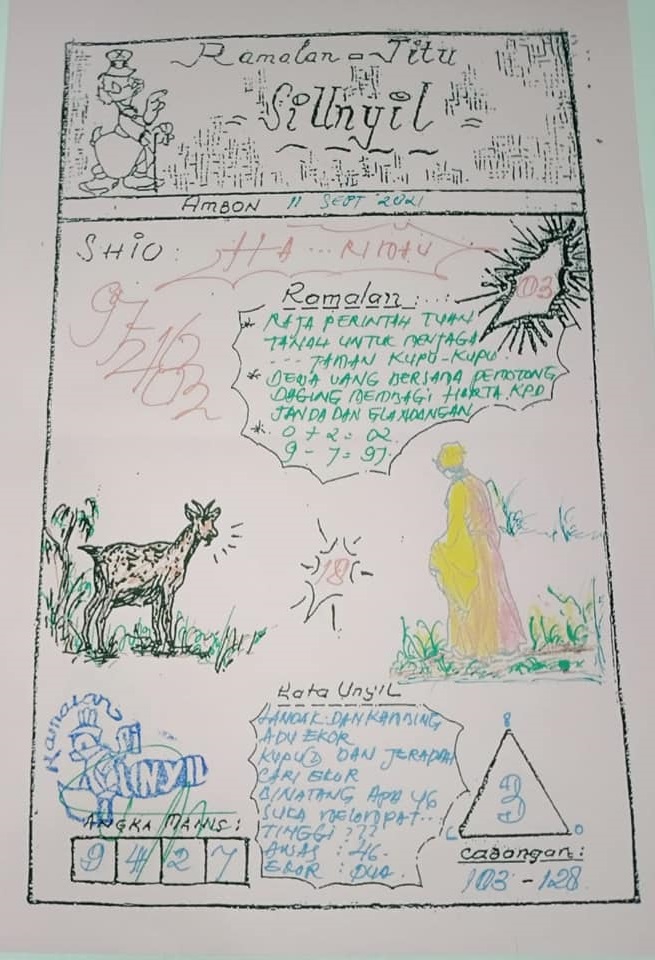 Ramalan = Jitu
= SiUnyil =
AMBON 11 SEPT 2021
SHIO : HA... RIMAU
103
97
Ramalan : . . . :
* RAJA PERINTAH TUAN
TANAH UNTUK MENJAGA
.... TAMAN KUPU-KUPU.
* DEWA UANG BERSAMA PEMOTONG
DAGING MEMBAGI HARTA KPD
JANDA DAN GLANDANGAN
* 0 + 2 = 02
9 - 7 = 97.
18
Kata Unyil
LANDAK DAN KAMBING
ADU EKOR
KUPU2 DAN JERAPAH
CARI EKOR
BINATANG APA YG
SUKA MELOMPAT..
TINGGI ???
AWAS : 46.
EKOR : DUA.
Ramalan
Si
UNYIL
ANGKA MANIS :
9 4 2 7
B
3
L O
Casongan :
103 - 128.